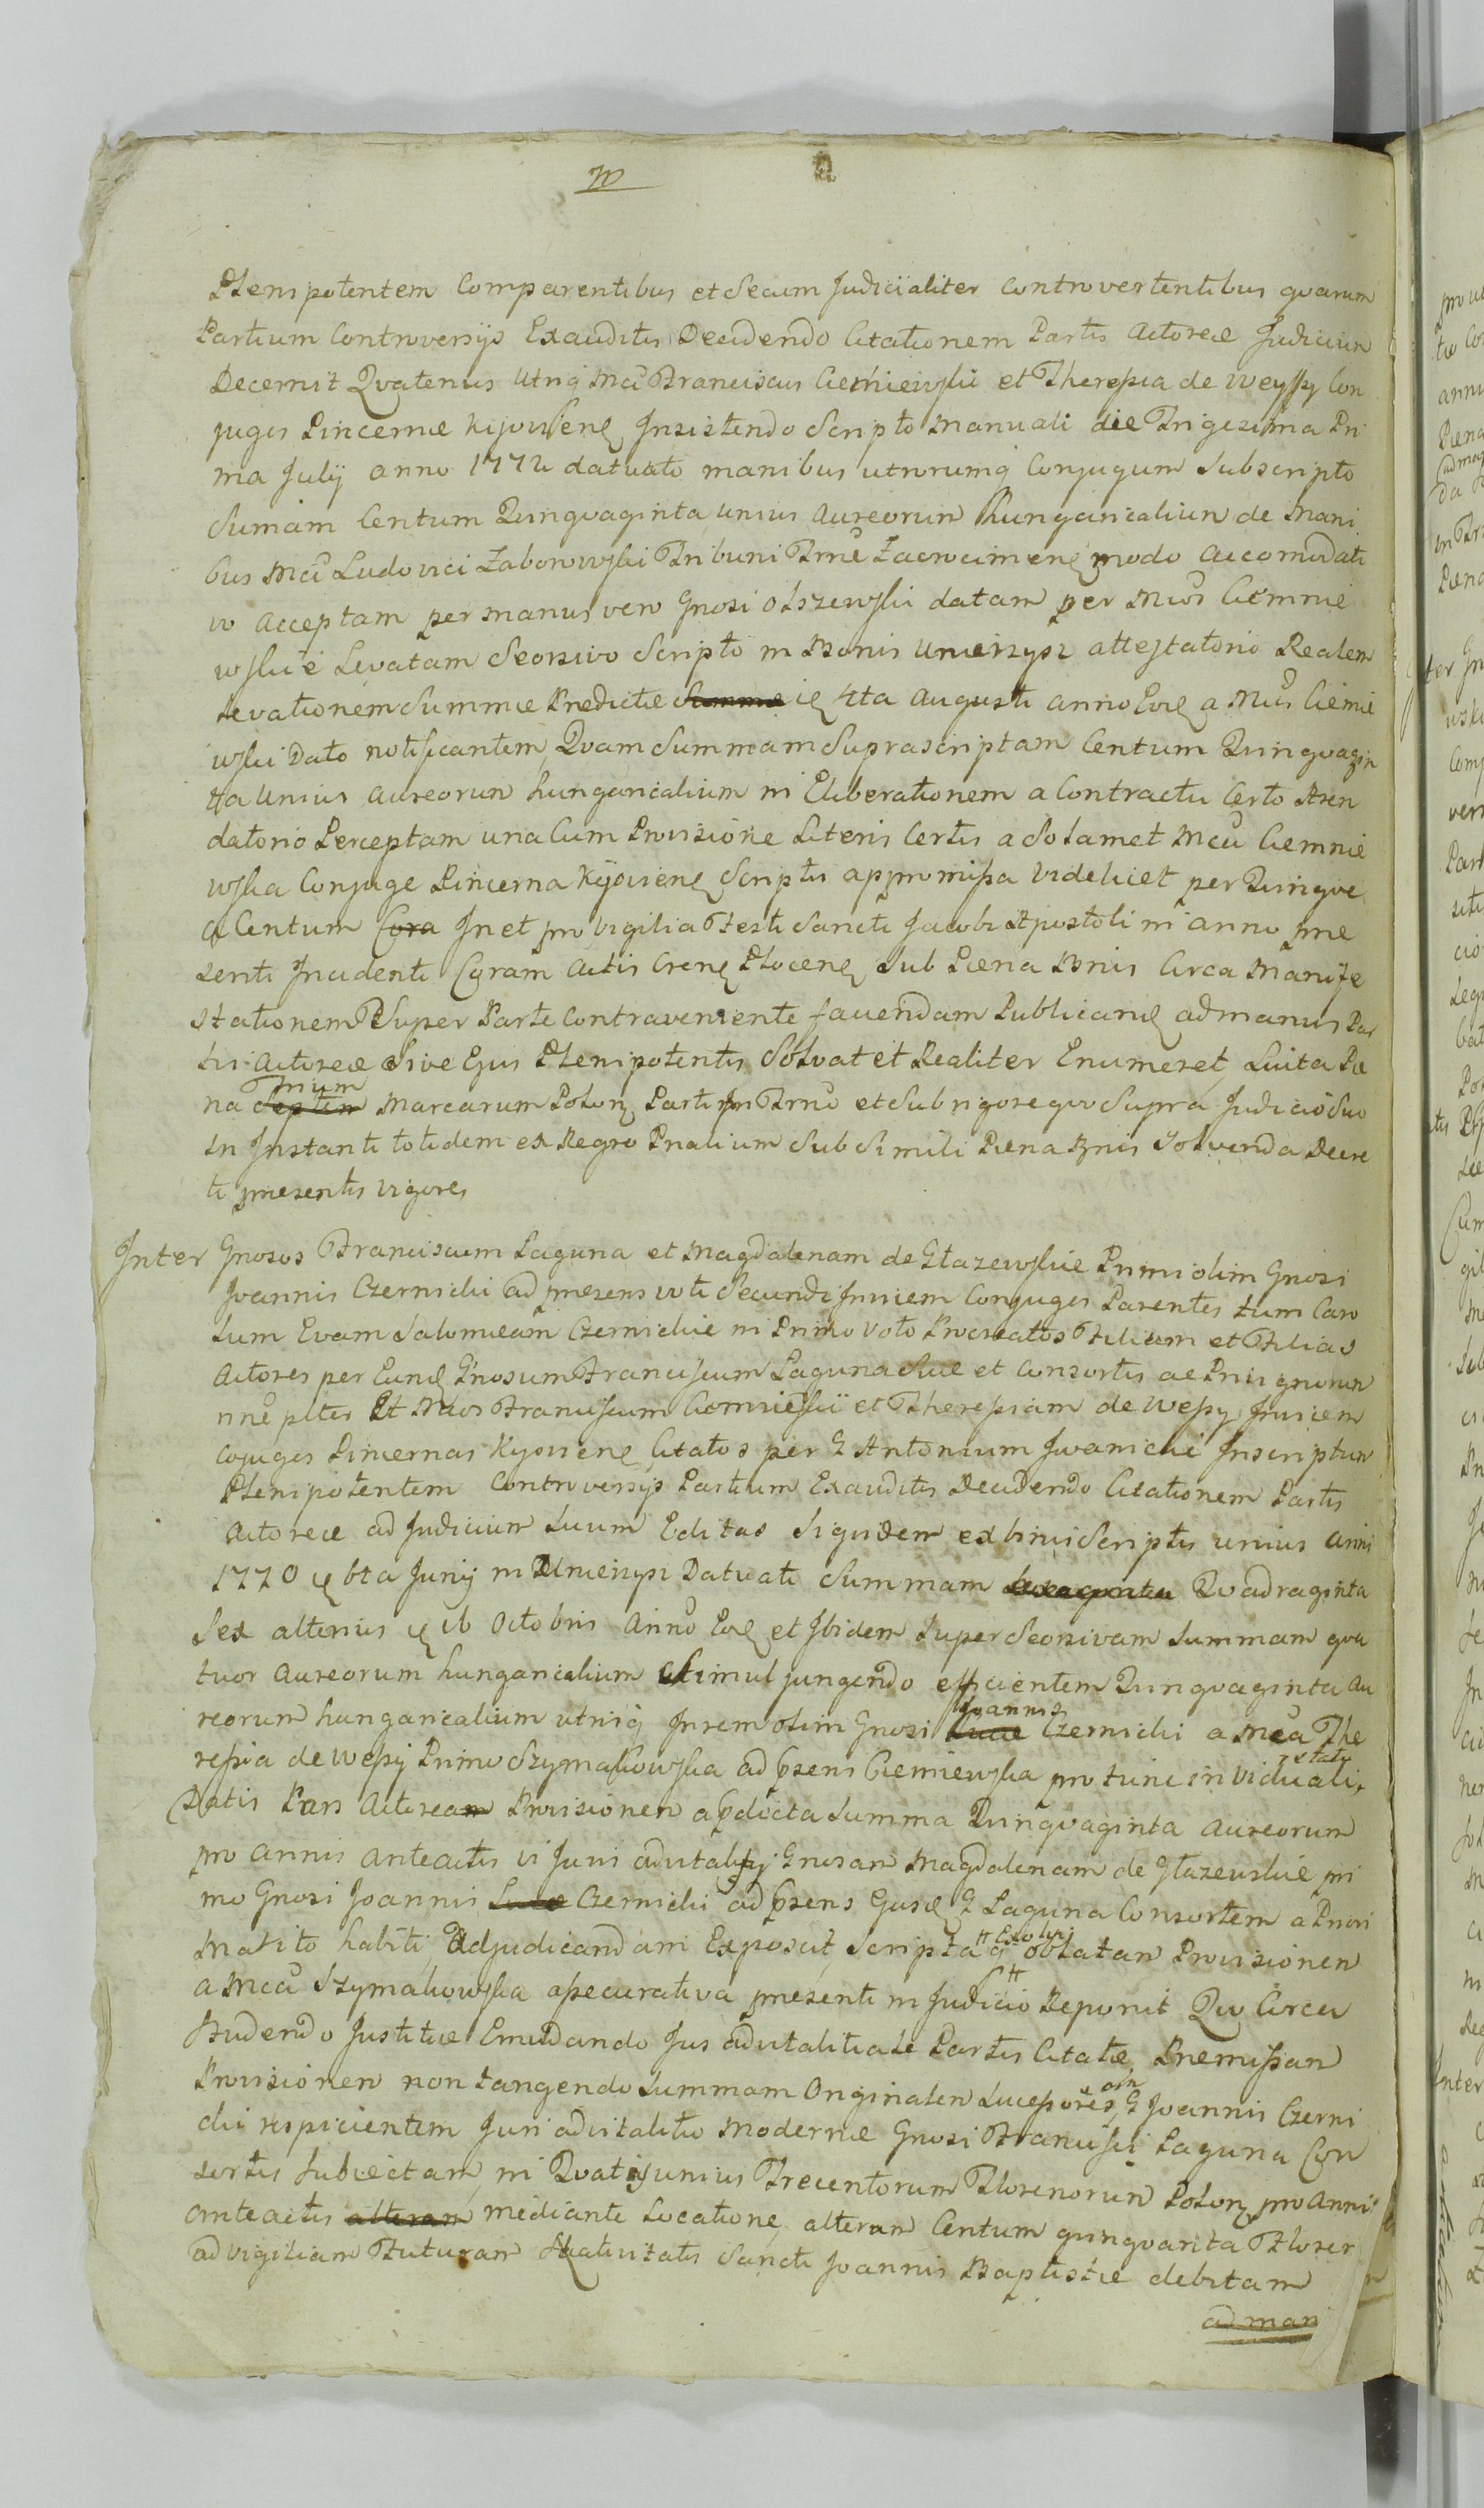 Plenipotentem Comparentibus et Secum Judicialiter Controvertentibus quarum
Partium Controversijs Exauditis Decidendo Citationem Partis Actoreæ Judicium
Decernit Qvatenus Utriq Mci Franciscus Ciemniewski et Theressia de Weyssy Con
juges Pincernæ Kijoviens Insistendo Scripto Manuali die Trigesima Pri
ma Julij anno 1772 datuato manibus utrorumq Conjugum Subscripto
Sumam Centum Qvinqvaginta unius Aureorum Hungaricalium de Mani
bus Mci Ludovici Zaborowski Tribuni Trræ Zacrocimens modo accomodati
vo Acceptam per manus vero Gnosi Olszewski datam per Mcos Ciemnie
wskie Levatam Seorsivo Scripto in Bonis Unierzysz attestatorio Realem
Levationem Summæ Prædictæ 4ta Augusti anno Eod a Mcis Ciemnie
wski Dato notificantem, Qvam Summam Suprascriptam Centum Qvinqvagin
ta Unius aureorum hungaricalium in Eliberationem a Contractu Certo Aren
datorio Perceptam una Cum Provisione Literis Certis a Solamet Mca Ciemnie
wska Conjuge Pincerna Kijoviens Scriptis appromissa Videlicet per Qvinqve
a Centum In et pro Vigilia Festi Sancti Jacobi Apostoli in anno præ
senti Incidenti Coram Actis Crens Plocens Sub Pæna Bnis Circa Manife
stationem Super Parte Contraveniente faciendam Publicand ad manus Par
tis Actoreæ Sive Ejus Plenipotentis Solvat et Realiter Enumeret, Luita Pæ
na Trium Marcarum Polon Parti In Trno et Sub rigore quo Supra Judicio Suo
In Instanti totidem ex Regro Pnalium Sub Simili Pæna Bnis Solvenda Decre
ti præsentis vigore
Inter Gnosos Franciscum Laguna et Magdalenam de Głazewskie Primi olim Gnosi
Joannis Czernicki ad præsens voti Secundi Invicem Conjuges Parentes tum Caro
lum Evam Salomeam Czernickie in Primo Voto Procreatos Filium et Filias
Actores per Eund Gnosum Franciscum Laguna Suæ et Consortis ac Privignorum
nne pltes Et Mcos Franciscum Ciemniewski et Theressiam de Wessy Invicem
Cojuges Pincernas Kyoviens Citatos per G Antonium Iwanicki Inscriptum
Plenipotentem Controversijs Partium Exauditis Decidendo Citationem Partis
Actoreæ ad Judicium Suum Editas Siquidem ex binis Scriptis unius anni
1770 6ta Junij in Unierzysz Datuati Summam Qvadraginta
Sex alterius Octobris Anno Eod et Ibidem Super Seorsivam Summam qva
tuor Aureorum hungaricalium Simul jungendo efficientem Qvinqvaginta Au
reorum hungaricalium utriq In rem olim Gnosi Joannis Czernicki a Mca The
ressia de Wessy Primo Szymakowska ad psens Ciemiewska pro tunc in Viduali statu
Datis Pars Actorea Provisionem a pdicta Summa Qvinqvaginta Aureorum
pro Annis anteactis vi Juris advitalitij Gnosam Magdalenam de Głazewskie pri
mo Gnosi Joannis Czernicki ad psens G Laguna Consortem a Priori
Marito habiti Adjudicandam Exposcit, Scripta q Exolvi oblatam Provisionem
a Mca Szymakowska assecurativa præsenti in Judicio Reponit Qvo Circa
Studendo Justitiæ Emundando Jus advitalitiale Partis Citatæ Præmissam
Provisionem non tangendo Summam Originalem Successores olm G Joannis Czerni
cki respicientem Juri advitalitio Modernæ Gnosi Francisci Laguna Con
sortis Subiectam, in Qvatis unius Trecentorum Florenorum Polon pro Annis
anteactis mediante Locatione alteram Centum qvinqvaginta Floren
ad vigiliam Futuram Nativitatis Sancti Joannis Baptistæ debitam
ad man